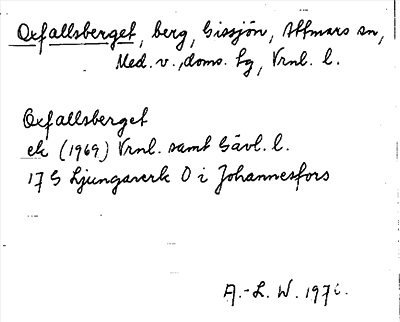 Oxfallsberget, berg, Gissjön, Attmars sn,
Med. v., doms. tg, Vrnl. l.
Oxfallsberget
ek (1969) Vrnl. samt Gävl. l.
17 G Ljungaverk O i Johannesfors
A.-L. W.